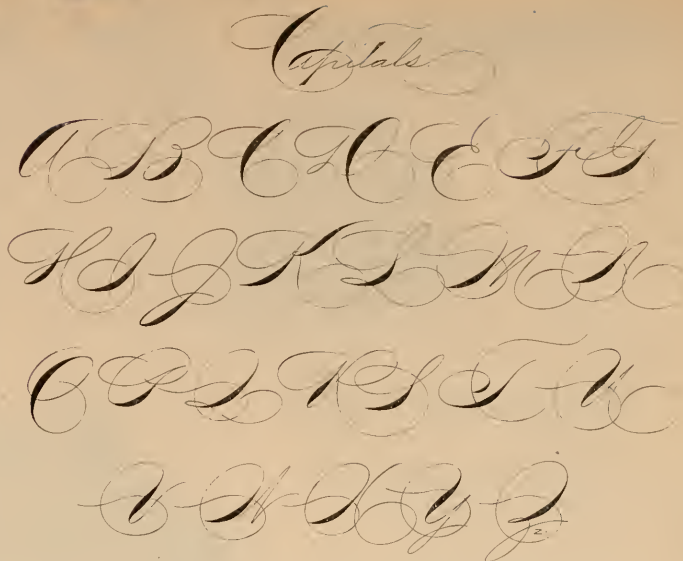 Capitals
A B C D E F G
H I J K L M N
O P Q R S T U
V W X Y Z